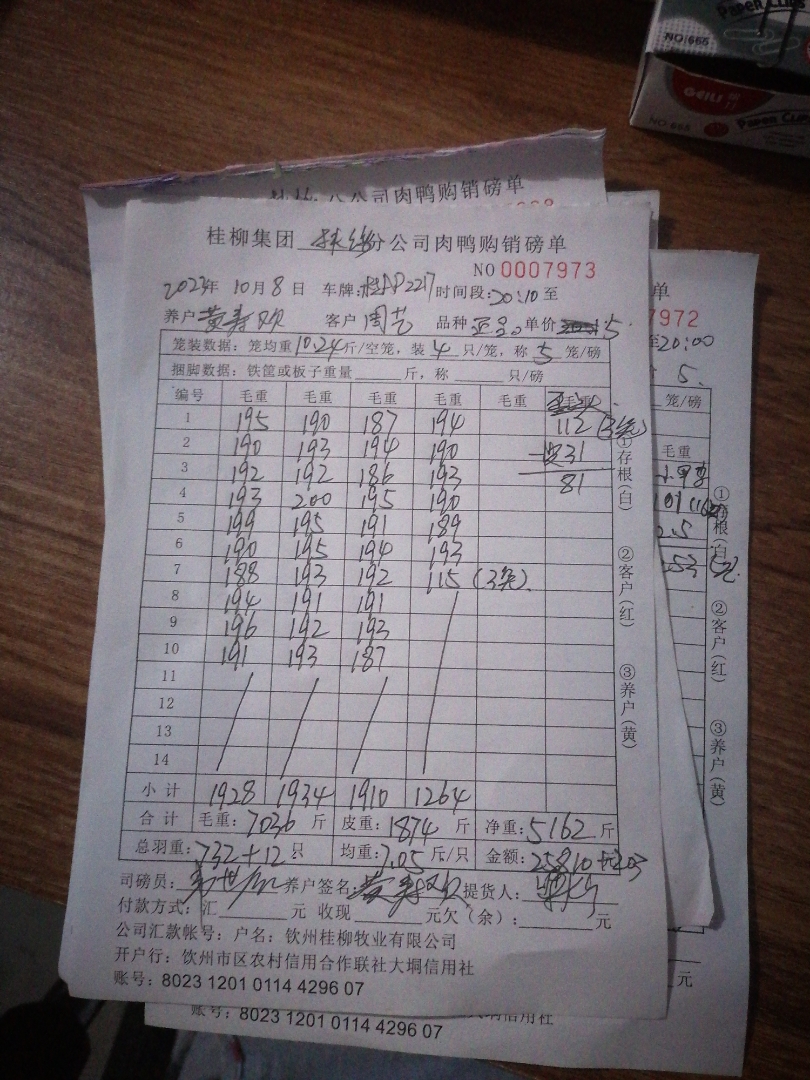 PAPER CLIPS
NO:666
GEILI
NO:666 PAPER CLIPS
公司肉鸭购销磅单
桂柳集团 分公司肉鸭购销磅单
单
NO 0007973
7972
2023年 10月 8日 车牌:桂AP2217 时间段:20:10 至
至20:00
养户 黄寿欢 客户 周艺 品种 单价 5
5.
笼装数据: 笼均重 10.24 斤/空笼, 装 4 只/笼, 称 5 笼/磅
笼/磅
捆脚数据: 铁筐或板子重量 斤, 称 只/磅
编号 毛重 毛重 毛重 毛重 毛重 毛重
毛重
1 195 190 187 194 112 (3笼)
2 190 193 194 190 31
3 192 192 186 193 81
4 193 200 195 190
5 199 195 191 189
6 190 195 194 193
7 188 193 192 115 (3笼)
8 194 191 191
9 196 192 193
10 191 193 187
11
12
13
14
小计 1928 1934 1910 1264
合计 毛重: 7036 斤 皮重: 1874 斤 净重: 5162 斤
总羽重: 732+12 只 均重: 7.05 斤/只 金额: 25810
司磅员: 养户签名: 黄寿欢 提货人:
付款方式: 汇 元 收现 元欠(余): 元
公司汇款帐号: 户名: 钦州桂柳牧业有限公司
开户行: 钦州市区农村信用合作联社大垌信用社
账号: 8023 1201 0114 4296 07
①存根(白)
②客户(红)
③养户(黄)
①存根(白)
②客户(红)
③养户(黄)
元
大垌信用社
账号: 8023 1201 0114 4296 07